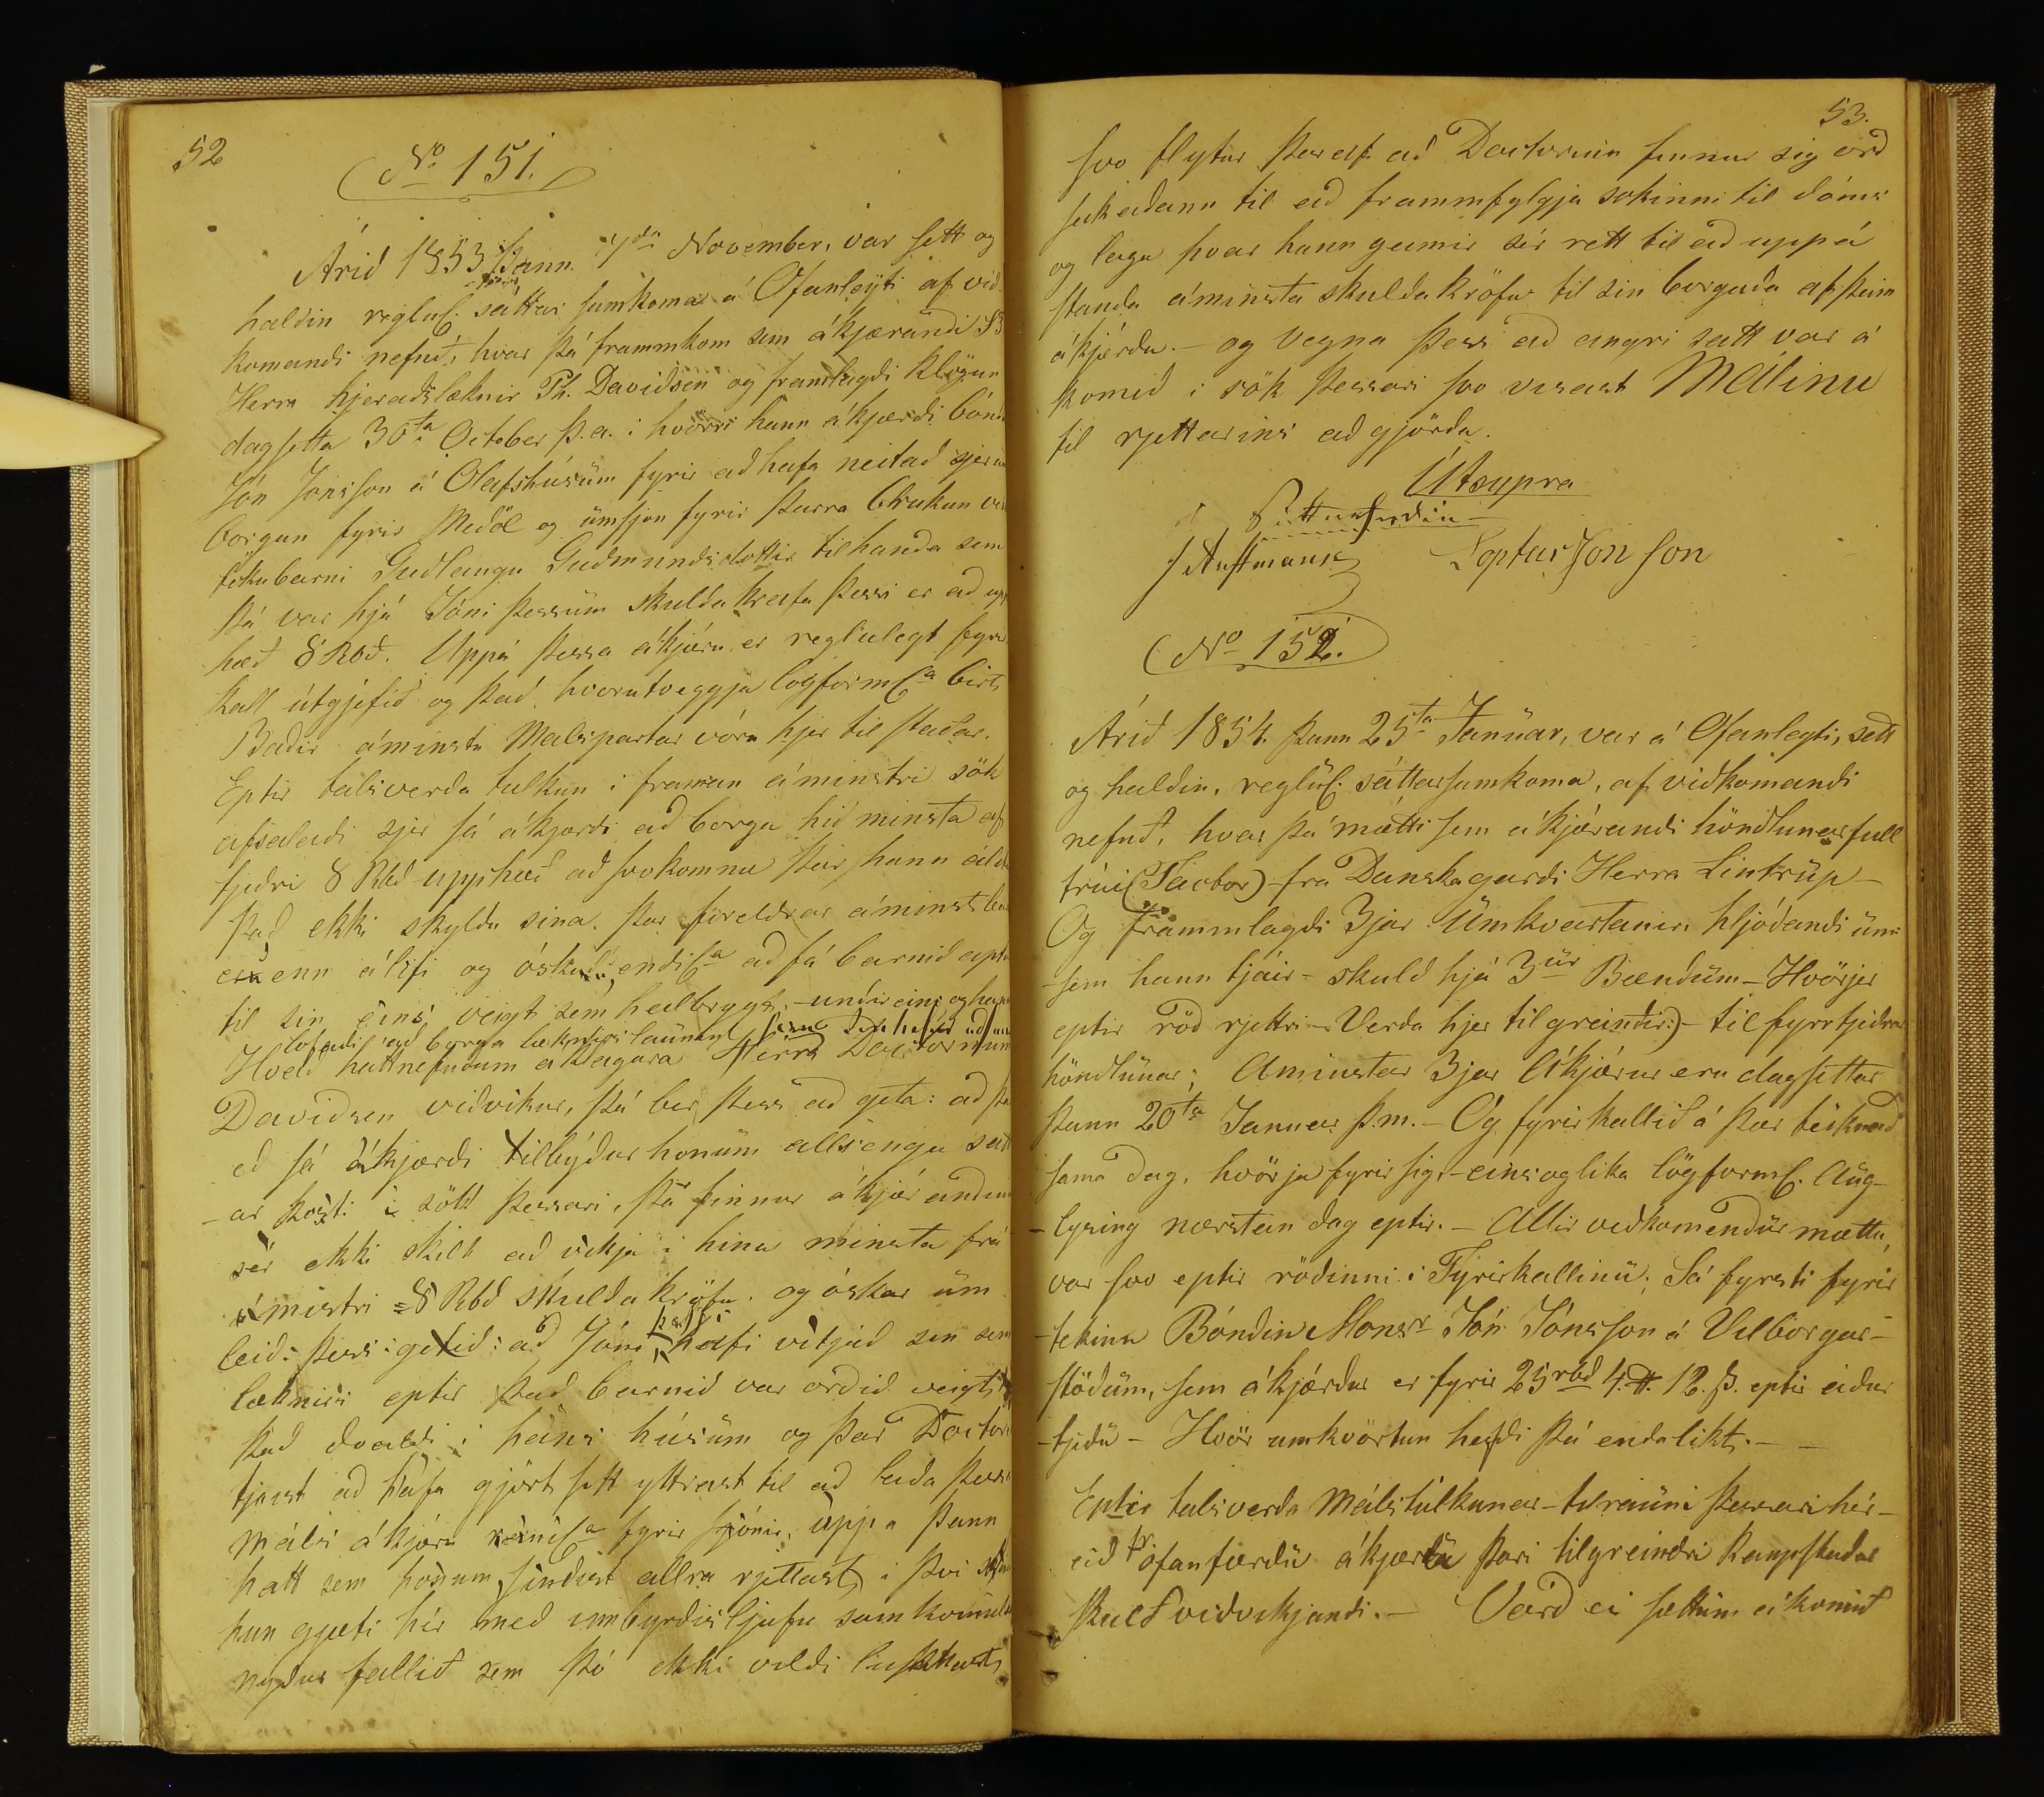 52
No 151.
Árið 1853 þann 7da November, var sett og
haldin reglul. sáttar samkoma á Ofanleyti af við-
komandi nefnd, hvar þá frammkom sem ákjærandi Sr
Herra hjeraðslæknir Ph. Davidsen og framlagði klögun
dagsetta 30ta October þ.a. í hvörri hann ákjærði bónda
Jón Jónsson á Olafshúsüm fyrir að hafa neitað sjer um
borgun fyrir Meðöl og ümsjón fyrir þarra brukun við
tökubarni Guðlaugu Guðmundsdottir tilhanda sem
þá var hjá Jóni þessüm skulda krafa þessi er að upp
hæð 8 Rbð. Uppá þessa ákjæru er reglulegt fyrir
kall útgjefið og það hvorutveggja logforml. birt
Baðir áminstu Malspartar vóru hjer til staðar.
Eptir talsverða tulkun í framan áminstri sök
afsalaði sjer sá ákjærði að borga hið minsta af
tjeðri 8 Rbd upphæð að svokomnu þar hann áleit
það ekki skyldu sina. þar foreldrar áminst barns
eru enn álifi og óskuðu endil. að fá barnið aptur
til sin eins veigt sem heilbrygt, undireins og hann
lofaði að borga læknirslaunin
Hvað hattnefndum áklagara Herra Doctornum
Davidsen viðvikur, þá ber þess að geta: að þar
eð sá ákjærði tilbýður honüm allsenga sátt
-ar kosti i sökk þessari, þá finnur ákjærandinn
sér ekki skilt að vikja i hina minsta frá
áminstri 8 Rbd skulda kröfu. og óskar üm
leið: þess: getið: að Jón þessi hafi vitjað sin sem
læknirs eptir það barnið var orðið veigt,
það dvaldi i hans húsüm og þar Doctor
tjaist að hafa gjört sitt yttrast til að leiða þessa
máls ákjæru fyrir sjónir, uppa þann
hatt sem honum sindist allra rjettast, i þvi
hun gjæti hér með innbyrðis ljufu samkomulagi
nyður fallið sem þó ekki vildi lukkast
53.
svo flytur þaraf að Doctorinn finnur sig orð
sakaðann til að frammfylgja sokinni til dóms
og laga hvar hann geimir sér rett til að uppá
standa áminsta skuldakröfu til sin borgaða af þeim
ákjærða. — og vegna þess að eingri satt var á
komið i sök þessari svo visast Málinu
til rjettarins aðgjörða.
Útsupra
J Austmann Loptur Jónsson
No 152.
Árið 1854 þann 25ta Janüar, var á Ofanleyti, sett
og haldin, reglül. sáttarsamkoma, af viðkomandi
nefnd, hvar þá mætti sem ákjærandi höndlunarfull
trúi (Factor) fra Danskagarði Herra Lintrüp —
Og frammlagði 3jar Ümkvartanir, hljóðandi üm
-sem hann tjáir - skuld hjá 3ür Bændüm — Hvörjer
eptir röð rjettri — Verda hjer tilgreindir:) — til fyrrtjeðrar
höndlünar; Aminstar 3jar Ákjærur eru dagsettar
þann 20ta Januar þ.m. — Og fyrirkallið á þær teiknað
sama dag, hvörja fyrir sig, — eins og lika lögforml. Aüg-
-lysing næstan dag eptir. — Allir viðkomendür mættu,
var svo eptir röðinni i Fyrirkallinü; Sá fyrsti fyrir
-tekinn Bóndin Monsr Jón Jónsson á Vilborgar-
stöðüm, sem ákjærður er fyrir 25rbd 4.# 12.ß. eptir áður
-tjeðü — Hvör umkvörtun hefði þá endalikt. —
Eptir talsverða Málstúlkunar-tilrauni þessari hér-
áð ofanfærðu ákjæru þari tilgreindri Kaupstadar
skuld viðvikjandi. — Varð ei sættum ákomið